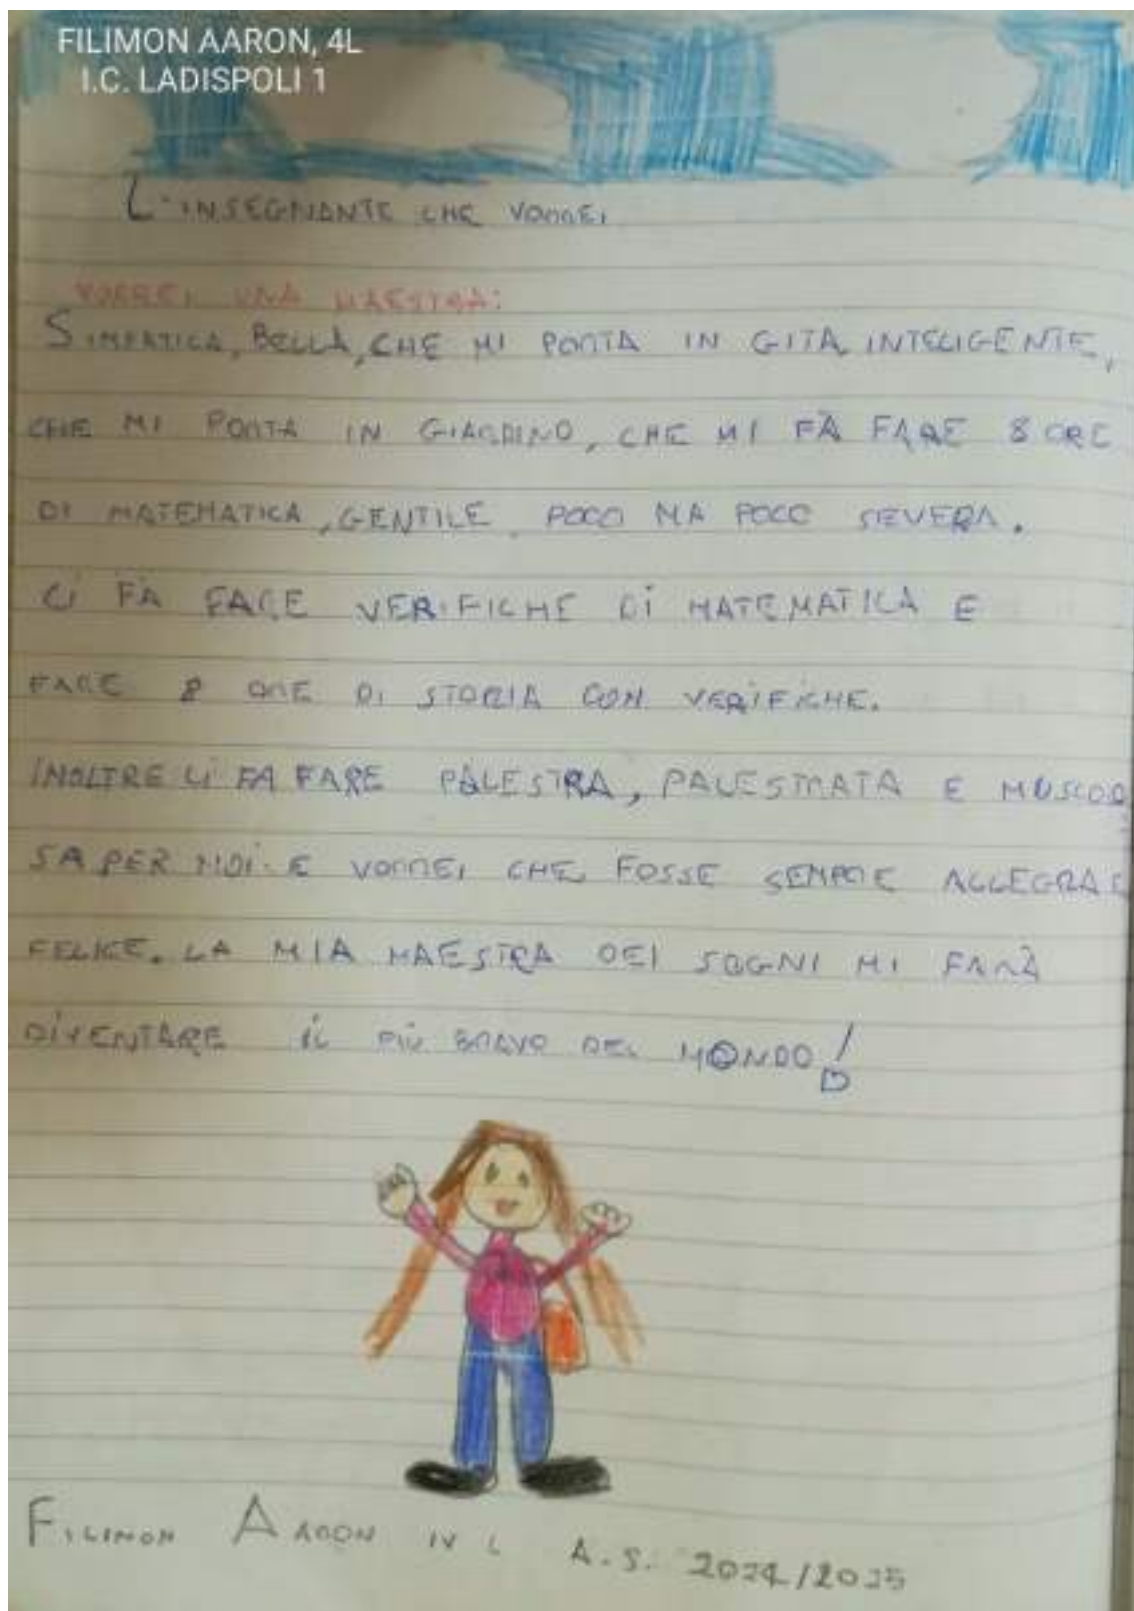 FILIMON AARON, 4L
I.C. LADISPOLI 1
L'INSEGNANTE CHE VORREI
VORREI UNA MAESTRA:
SIMPATICA, BELLA, CHE MI PORTA IN GITA, INTELIGENTE,
CHE MI PORTA IN GIARDINO, CHE MI FÀ FARE 8 ORE
DI MATEMATICA, GENTILE, POCO MA POCO SEVERA.
CI FA FARE VERIFICHE DI MATEMATICA E
FARE 8 ORE DI STORIA CON VERIFICHE.
INOLTRE CI FA FARE PALESTRA, PALESTRATA E MUSCOLO
SA PER NOI. E VORREI CHE FOSSE SEMPRE ALLEGRA E
FELICE. LA MIA MAESTRA DEI SOGNI MI FARÀ
DIVENTARE IL PIÙ BRAVO DEL MONDO!
FILIMON AARON IV L A.S. 2024/2025